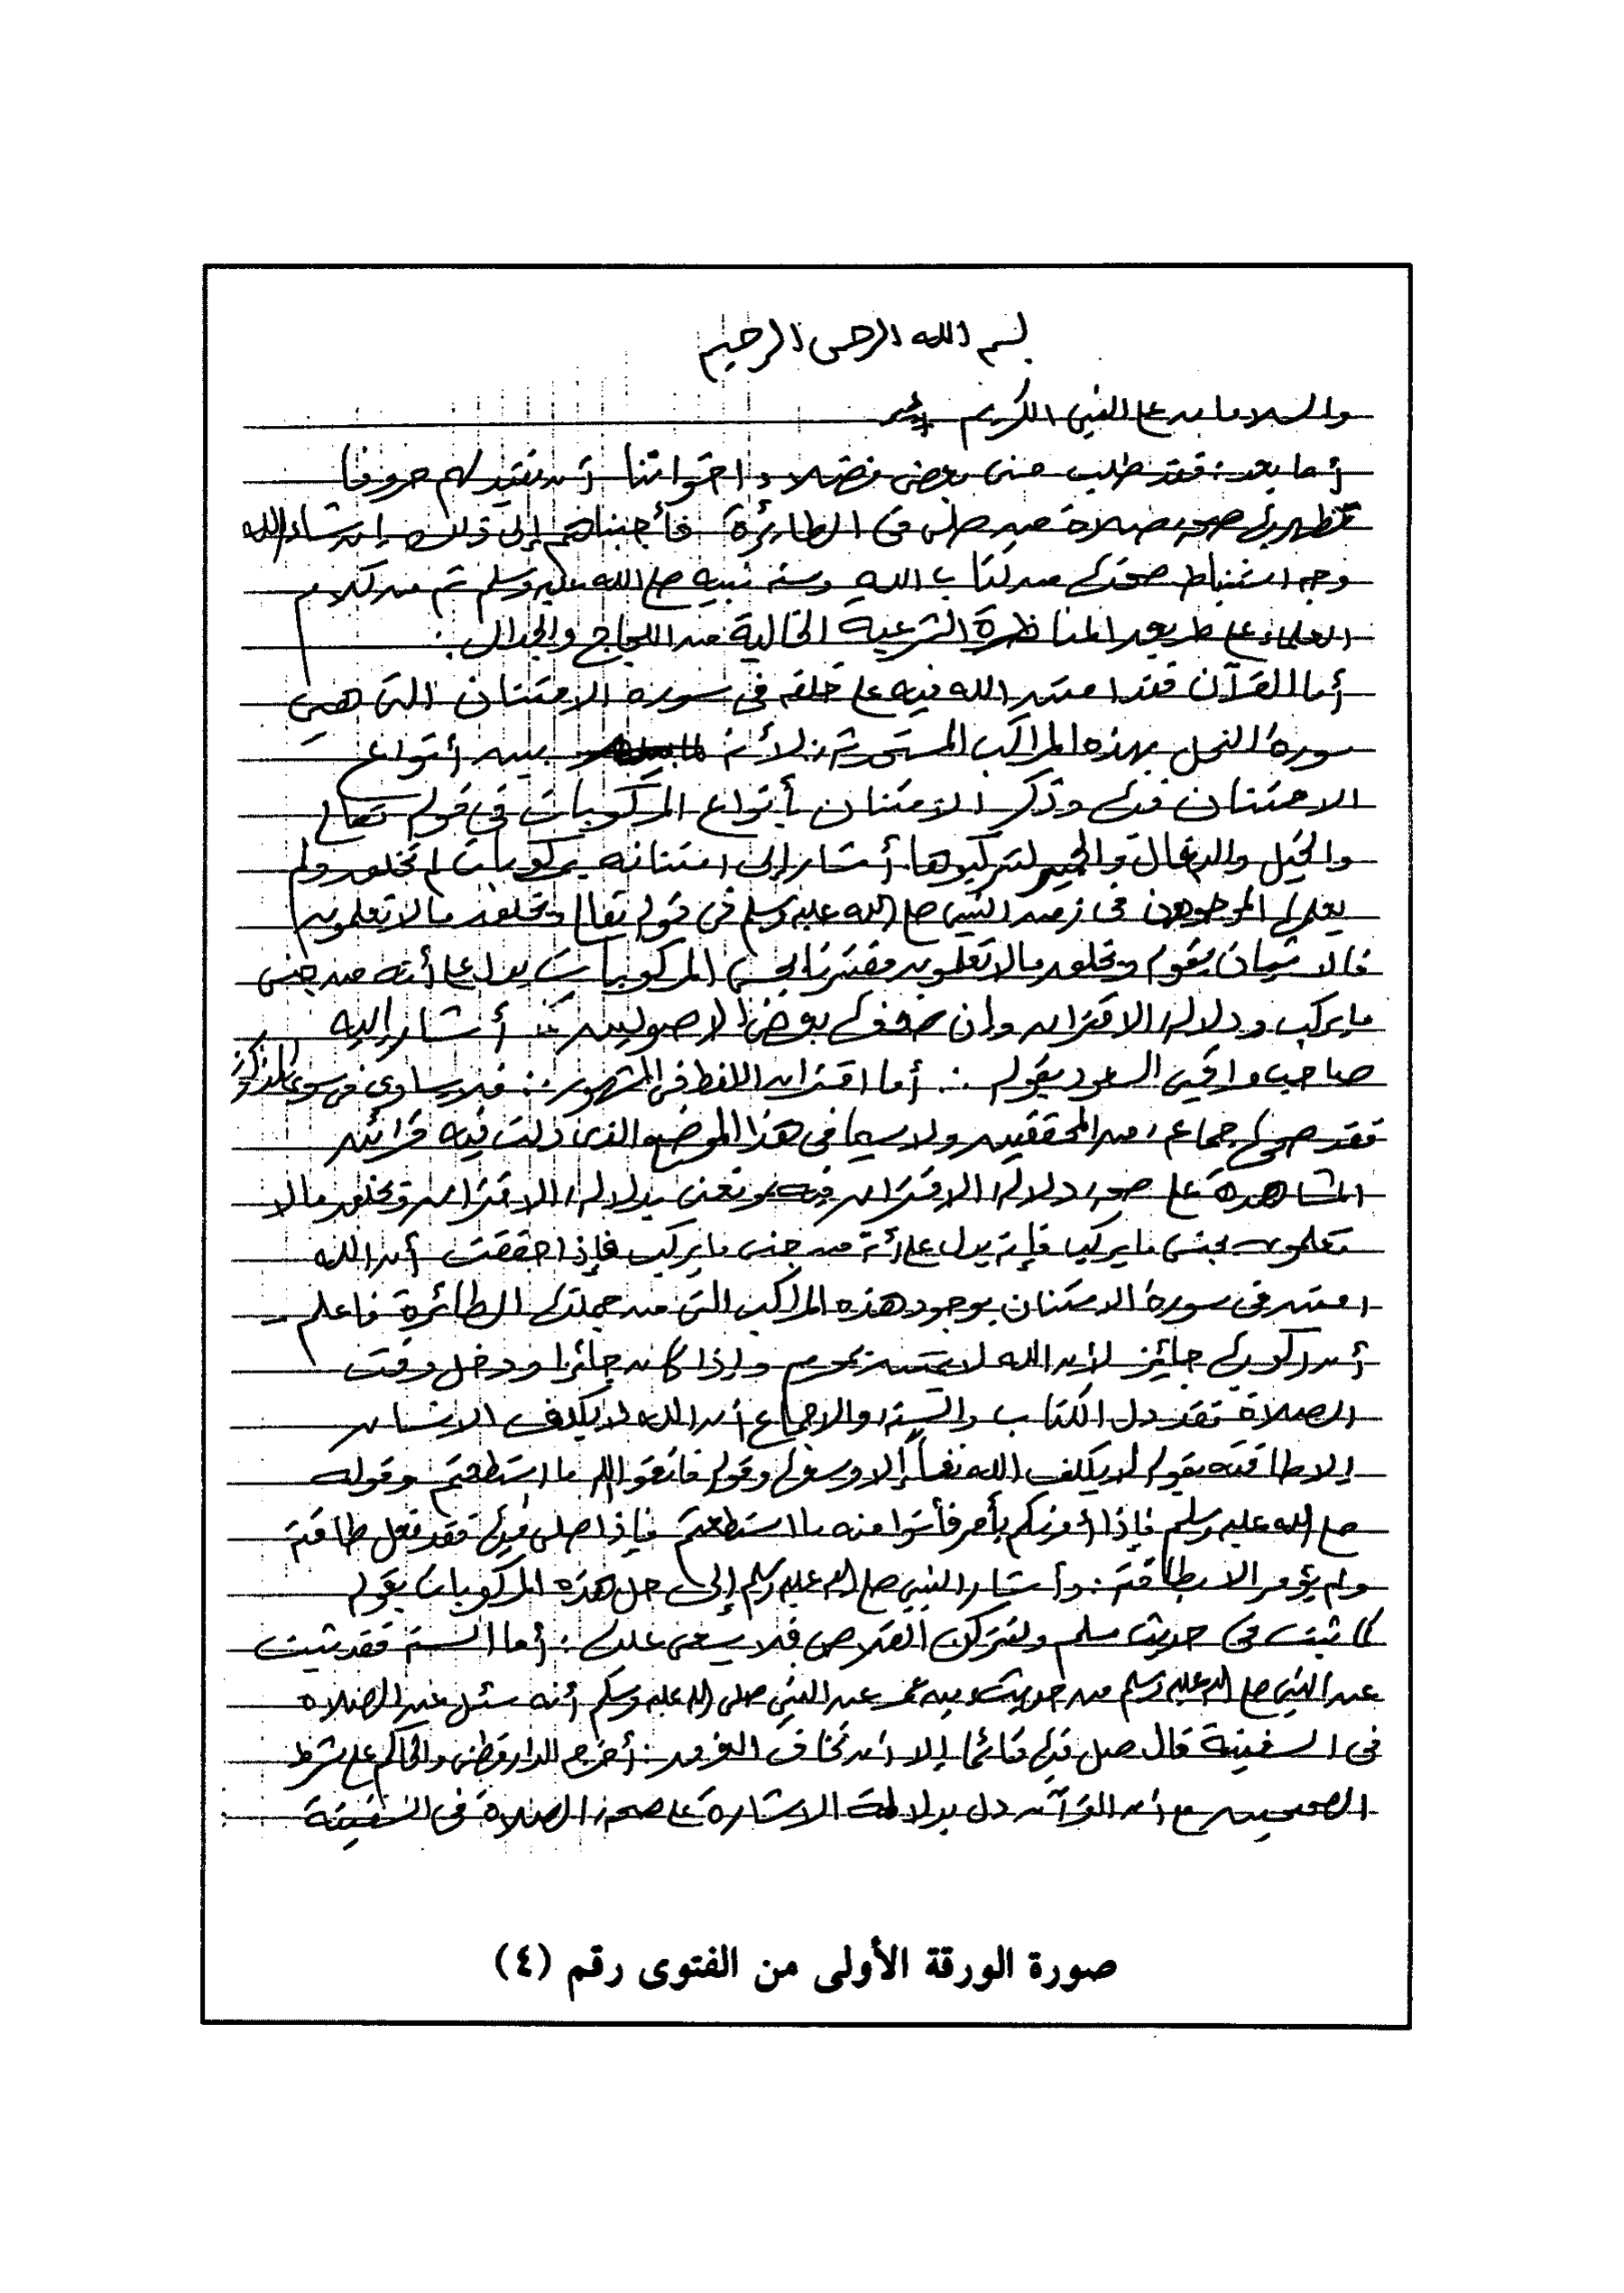 بسم الله الرحمن الرحيم
والسلامان على النبي الكريم
أما بعد: فقد طلب مني بعض فضلاء اخواننا أن نقيد لهم حروفا
تظهر بها صحة صلاة من صلى في الطائرة فأجبناهم إلى ذلك إن شاء الله
وجه استنباط صحتها من كتاب الله وسنة نبيه صلى الله عليه وسلم ثم من كلام
العلماء على طريق المناظرة الشرعية الخالية من اللجاج والجدال:
أما القرآن فقد امتن الله فيه على خلقه في سورة الامتنان التي هي
سورة النحل بهذه المراكب المستحدثة: لأنه لما بين أنواع
الامتنان فيها وذكر الامتنان بأنواع المركوبات في قوله تعالى
والخيل والبغال والحمير لتركبوها أشار إلى امتنانه بمركوبات لم تخلق ولم
يعلمها الموجودون في زمن النبي صلى الله عليه وسلم في قوله تعالى ويخلق ما لا تعلمون
فالاتيان بقوله ويخلق ما لا تعلمون مقترنا بجنس المركوبات يدل على أنه من جنس
ما يركب ودلالة الاقتران وإن ضعفها بعض الأصوليين كما أشار إليه
صاحب مراقي السعود بقوله: أما اقتران اللفظ في المشهور: فلا يساوي في سوى المذكور
فقد صححها جماعة من المحققين ولا سيما في هذا الموضع الذي دلت فيه قرائن
المشاهدة على صحة دلالة الاقتران فيه ونعني بدلالة الاقتران ويخلق ما لا
تعلمون بجنس ما يركب فإنه يدل على أنه من جنس ما يركب فإذا حققت أن الله
امتن في سورة الامتنان بوجود هذه المراكب التي من جملتها الطائرة فاعلم
أن ركوبها جائز لأن الله لا يمتن بمحرم وإذا كان جائزا ودخل وقت
الصلاة فقد دل الكتاب والسنة والإجماع أن الله لا يكلف الانسان
إلا طاقته بقوله لا يكلف الله نفسا إلا وسعها وقوله فاتقوا الله ما استطعتم وقوله
صلى الله عليه وسلم فإذا أمرتكم بأمر فأتوا منه ما استطعتم فإذا صلى فيها فقد فعل طاقته
ولم يؤمر إلا بطاقته: وأشار النبي صلى الله عليه وسلم إلى حل هذه المركوبات بقوله
كما ثبت في حديث مسلم ولتتركن القلاص فلا يسعى عليها: أما السنة فقد ثبت
عن النبي صلى الله عليه وسلم من حديث ابن عمر عن النبي صلى الله عليه وسلم أنه سئل عن الصلاة
في السفينة قال صل فيها قائما إلا أن تخاف الغرق: أخرجه الدارقطني والحاكم على شرط
الصحيحين مع أن القرآن دل بدلالة الاشارة على صحة الصلاة في السفينة
صورة الورقة الأولى من الفتوى رقم (٤)